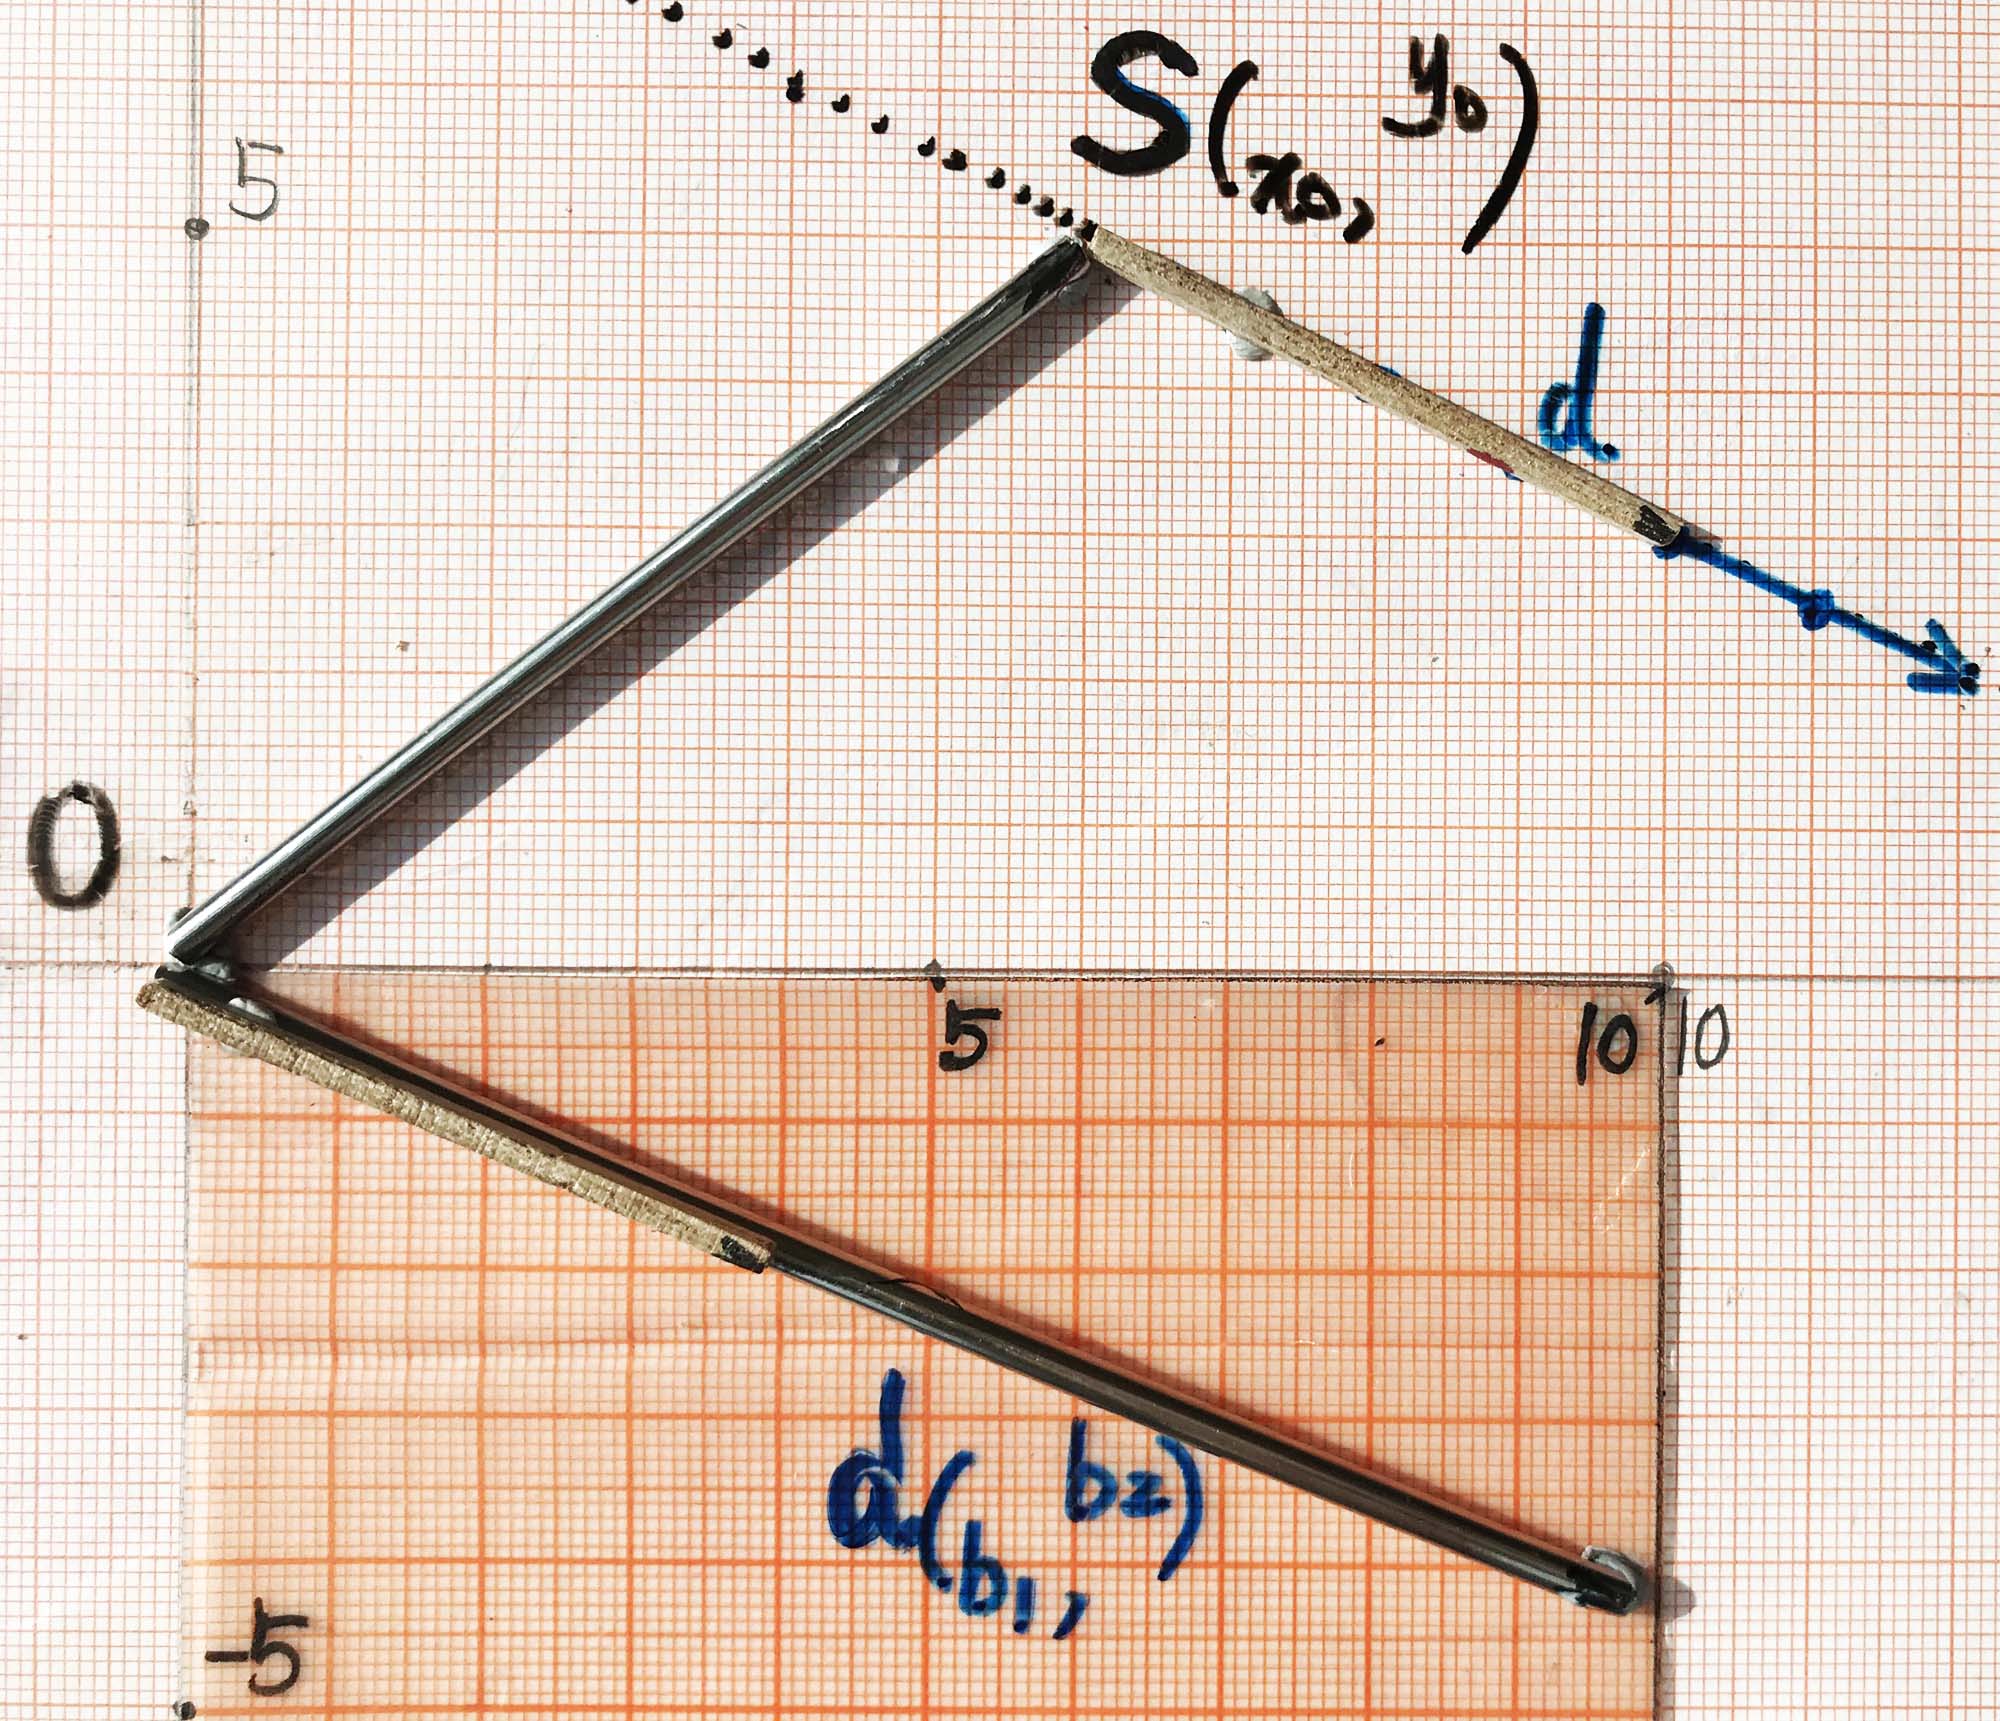 S(x₀, y₀)
5
d
0
5
10
10
d(b₁, b₂)
-5